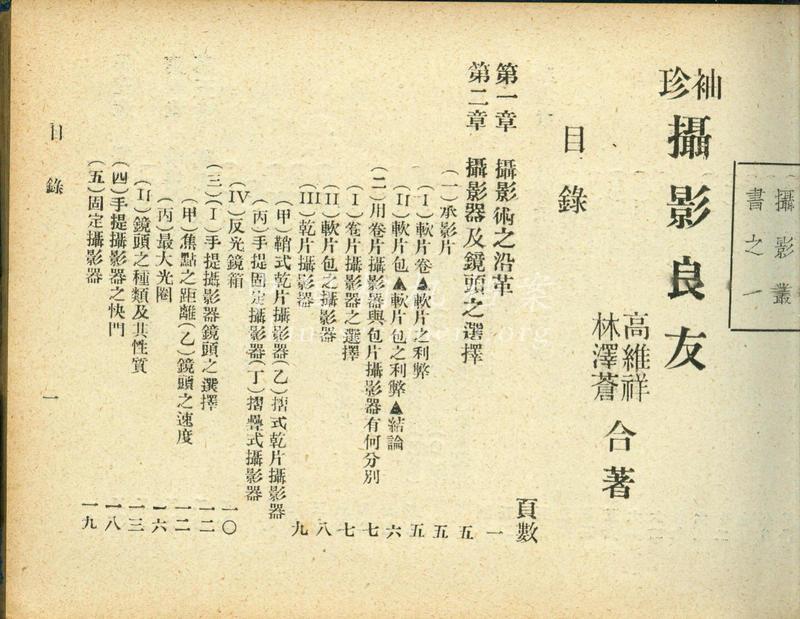 攝影叢
書之一
袖珍
攝影良友
高維祥
林澤蒼
合著
目錄
頁數
第一章 攝影術之沿革 一
第二章 攝影器及鏡頭之選擇 五
(一)承影片 五
(I)軟片卷▲軟片之利弊 五
(II)軟片包▲軟片包之利弊▲結論 六
(二)用卷片攝影器與包片攝影器有何分別 七
(I)卷片攝影器之選擇 七
(II)軟片包之攝影器 八
(III)乾片攝影器 九
(甲)鞘式乾片攝影器(乙)摺式乾片攝影器
(丙)手提固定攝影器(丁)摺疊式攝影器
(IV)反光鏡箱 一〇
(三)(I)手提攝影器鏡頭之選擇 一二
(甲)焦點之距離(乙)鏡頭之速度 一二
(丙)最大光圈 一六
(II)鏡頭之種類及其性質 一三
(四)手提攝影器之快門 一八
(五)固定攝影器 一九
目錄
一